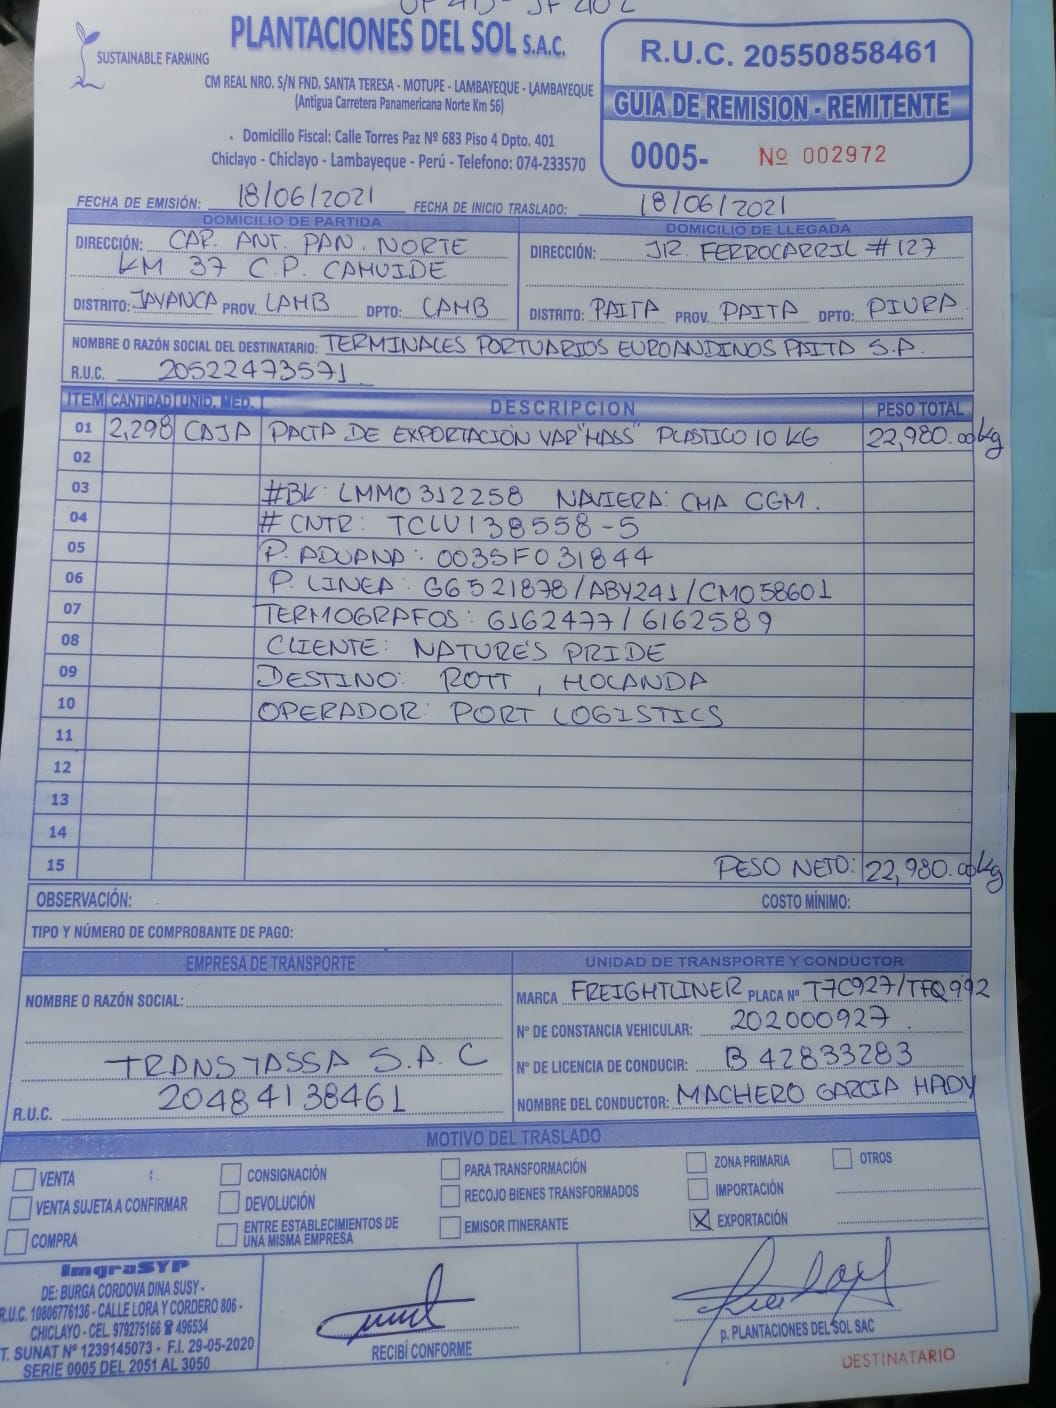 SUSTAINABLE FARMING
PLANTACIONES DEL SOL S.A.C.
CM REAL NRO. S/N FND. SANTA TERESA - MOTUPE - LAMBAYEQUE - LAMBAYEQUE
(Antigua Carretera Panamericana Norte Km 56)
Domicilio Fiscal: Calle Torres Paz Nº 683 Piso 4 Dpto. 401
Chiclayo - Chiclayo - Lambayeque - Perú - Telefono: 074-233570
R.U.C. 20550858461
GUIA DE REMISION - REMITENTE
0005- Nº 002972
FECHA DE EMISIÓN: 18/06/2021 FECHA DE INICIO TRASLADO: 18/06/2021
DOMICILIO DE PARTIDA
DIRECCIÓN: CAR. ANT. PAN. NORTE
KM 37 C.P. CAHUIDE
DISTRITO: JAYANCA PROV. LAMB DPTO: LAMB
DOMICILIO DE LLEGADA
DIRECCIÓN: JR. FERROCARRIL # 127
DISTRITO: PAITA PROV. PAITA DPTO: PIURA
NOMBRE O RAZÓN SOCIAL DEL DESTINATARIO: TERMINALES PORTUARIOS EUROANDINOS PAITA S.A.
R.U.C. 20522473571
ITEM CANTIDAD UNID. MED. DESCRIPCION PESO TOTAL
01 2,298 CAJA PALTA DE EXPORTACIÓN VAR "HASS" PLASTICO 10 KG 22,980.00 kg
02
03 #BK: LMM0312258 NAVIERA: CMA CGM.
04 # CNTR: TCLU138558-5
05 P. ADUANA: 003SF031844
06 P. LINEA: G6521878/ABY241/CMO58601
07 TERMOGRAFOS: 6162477/6162589
08 CLIENTE: NATURE'S PRIDE
09 DESTINO: ROTT, HOLANDA
10 OPERADOR: PORT LOGISTICS
11
12
13
14
15 PESO NETO: 22,980.00 kg
OBSERVACIÓN: COSTO MÍNIMO:
TIPO Y NÚMERO DE COMPROBANTE DE PAGO:
EMPRESA DE TRANSPORTE
NOMBRE O RAZÓN SOCIAL:
TRANSTASSA S.A.C
R.U.C. 20484138461
UNIDAD DE TRANSPORTE Y CONDUCTOR
MARCA FREIGHTLINER PLACA Nº T7C927/TFQ992
Nº DE CONSTANCIA VEHICULAR: 202000927
Nº DE LICENCIA DE CONDUCIR: B 42833283
NOMBRE DEL CONDUCTOR: MACHERO GARCIA HADY
MOTIVO DEL TRASLADO
VENTA
VENTA SUJETA A CONFIRMAR
COMPRA
CONSIGNACIÓN
DEVOLUCIÓN
ENTRE ESTABLECIMIENTOS DE
UNA MISMA EMPRESA
PARA TRANSFORMACIÓN
RECOJO BIENES TRANSFORMADOS
EMISOR ITINERANTE
ZONA PRIMARIA
IMPORTACIÓN
X EXPORTACIÓN
OTROS
ImgraSYP
DE: BURGA CORDOVA DINA SUSY -
R.U.C. 10806776136 - CALLE LORA Y CORDERO 806 -
CHICLAYO - CEL. 979275166 ☎ 496534
T. SUNAT Nº 1239145073 - F.I. 29-05-2020
SERIE 0005 DEL 2051 AL 3050
RECIBÍ CONFORME
p. PLANTACIONES DEL SOL SAC
DESTINATARIO